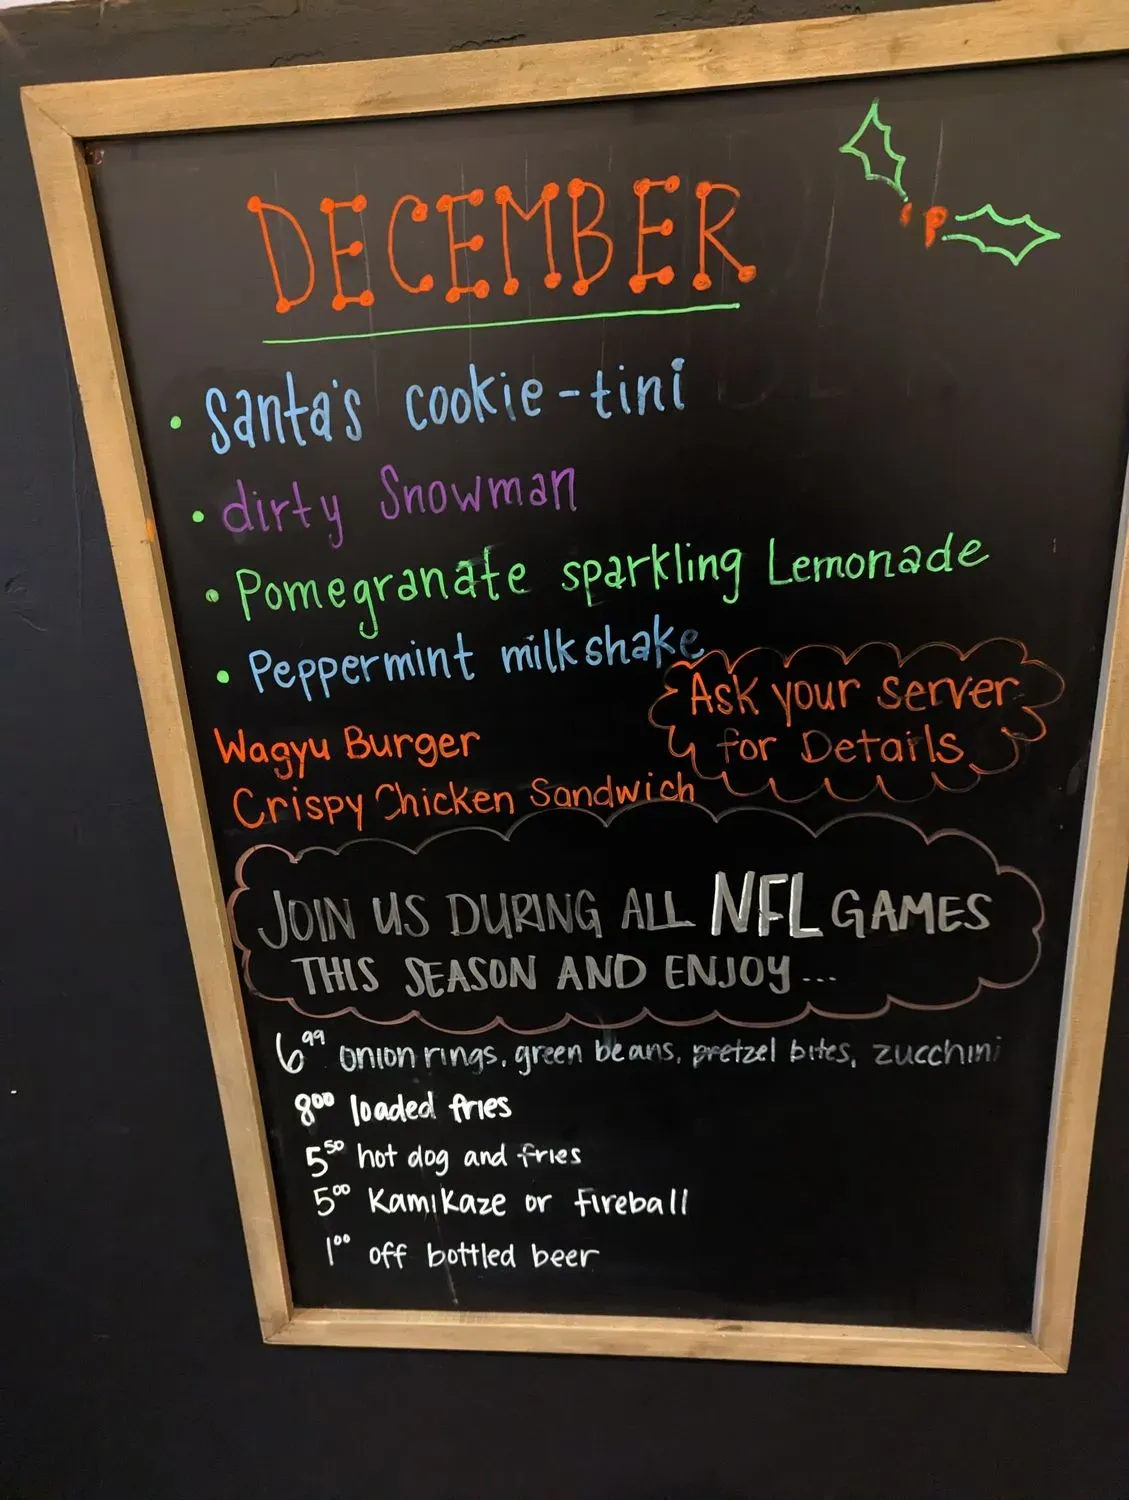 DECEMBER
• Santa's cookie-tini
• dirty Snowman
• Pomegranate sparkling Lemonade
• Peppermint milkshake
Ask your server
for Details
Wagyu Burger
Crispy Chicken Sandwich
JOIN US DURING ALL NFL GAMES
THIS SEASON AND ENJOY...
6⁹⁹ onion rings, green beans, pretzel bites, zucchini
8⁰⁰ loaded fries
5⁵⁰ hot dog and fries
5⁰⁰ Kamikaze or fireball
1⁰⁰ off bottled beer